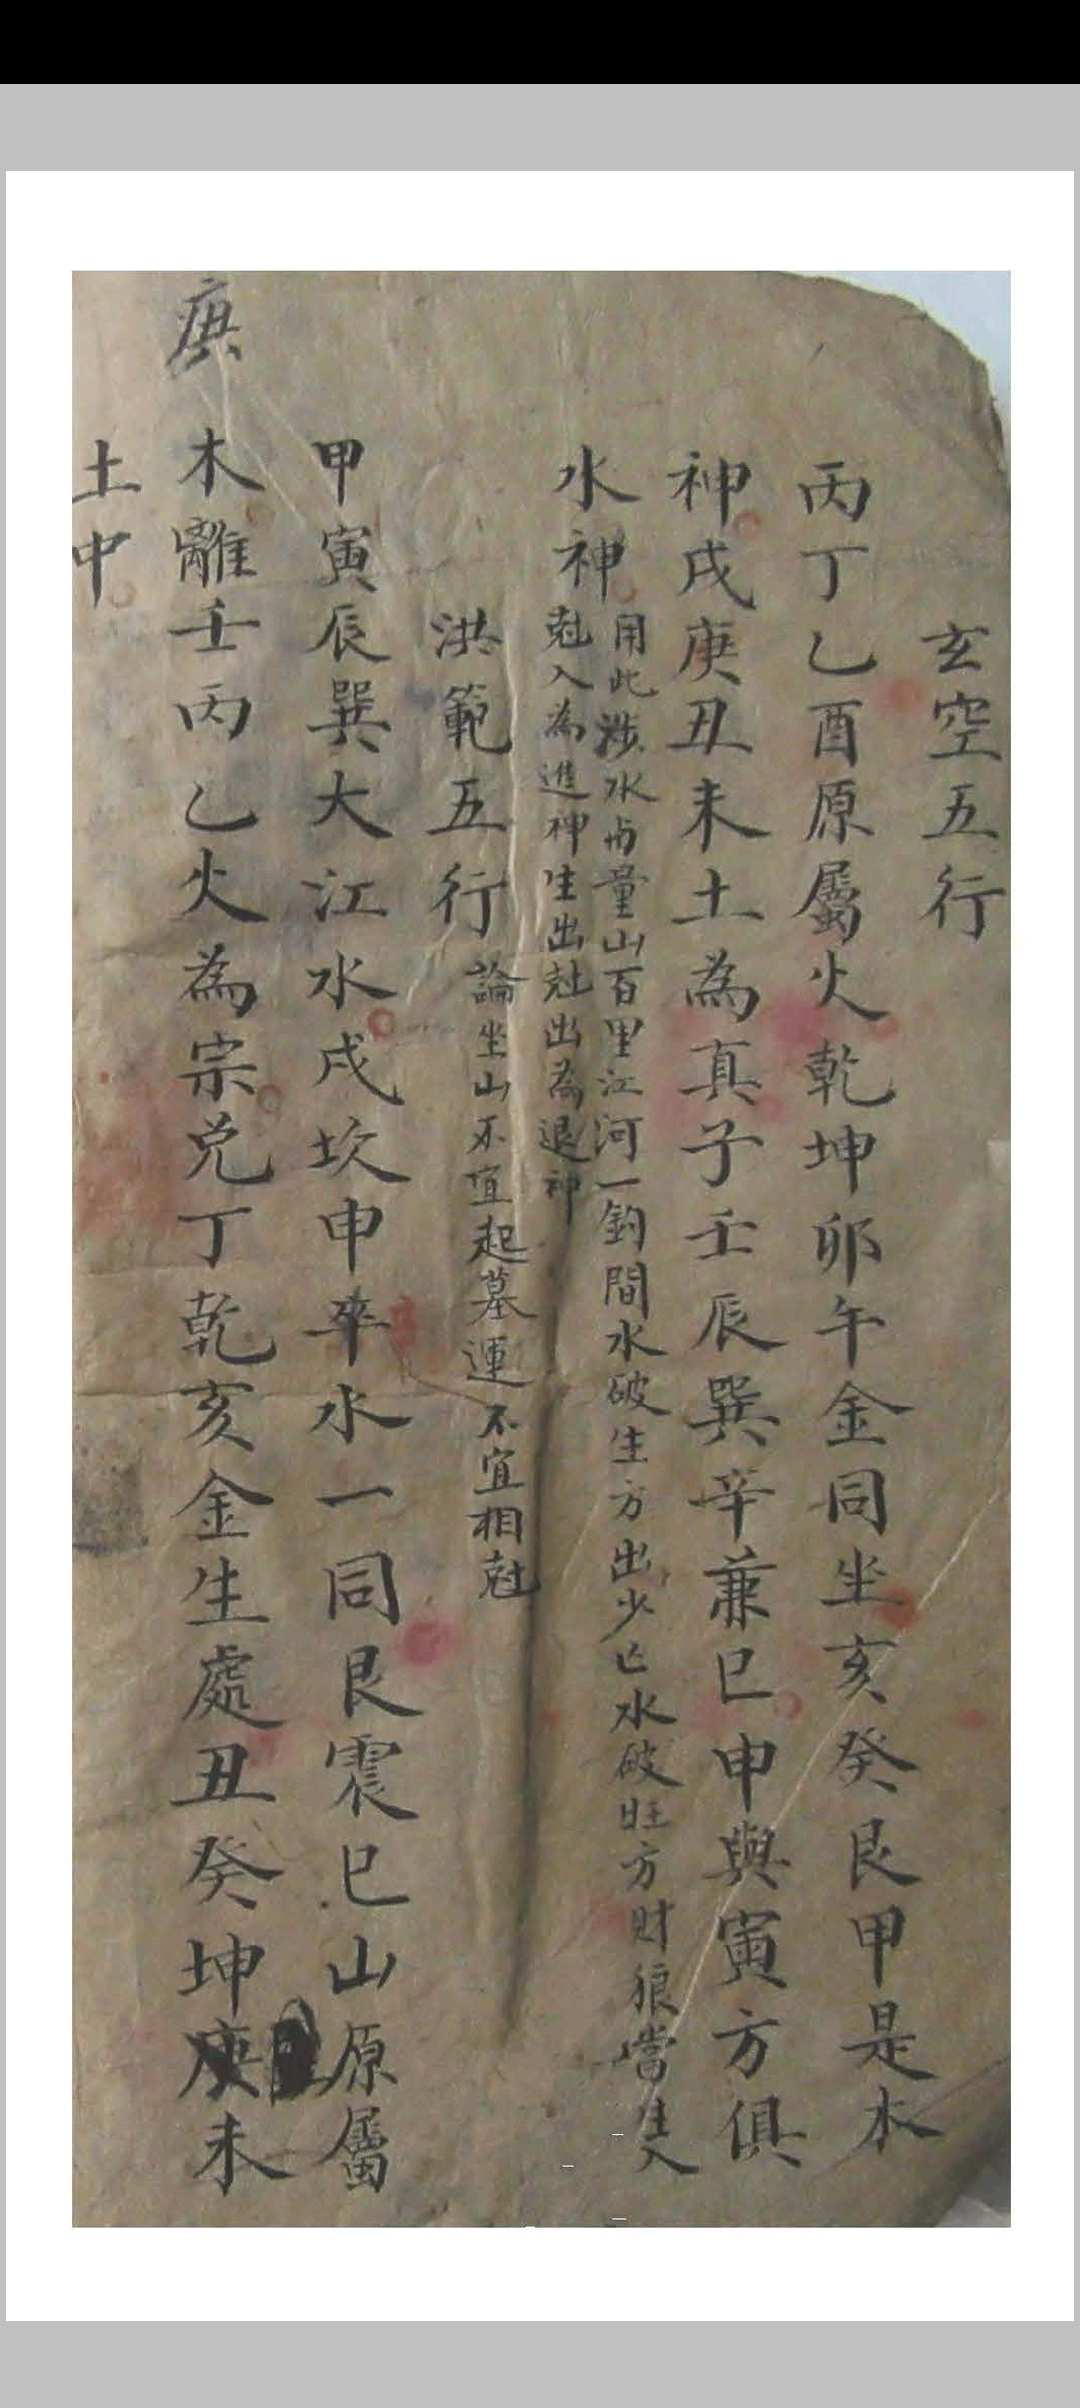 玄空五行
丙丁乙酉原屬火乾坤卯午金同坐亥癸艮甲是木
神戌庚丑未土為真子壬辰巽辛兼巳申與寅方俱
水神
用此涉水與量山百里江河一鈎間水破生方出少亡水破旺方財狼當
尅入為進神生出尅出為退神
洪範五行
論坐山不宜起墓運不宜相尅
甲寅辰巽大江水戌坎申辛水一同艮震巳山原屬
木離壬丙乙火為宗兌丁乾亥金生處丑癸坤庚未
庚
土中